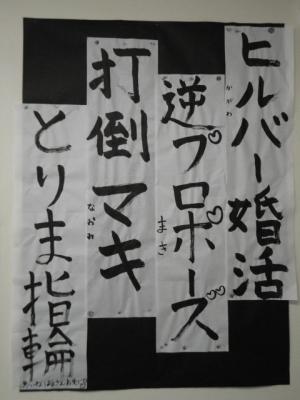 ヒルバー婚活
かがわ
逆プロポーズ
まき
打倒マキ
なおみ
とりま指輪